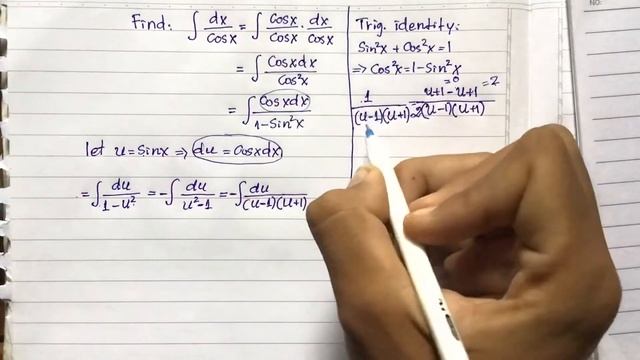 Find: ∫ dx/Cosx = ∫ Cosx/Cosx · dx/Cosx
= ∫ Cosxdx/Cos²x
= ∫ Cosxdx/1-Sin²x
let u = Sinx ⇒ du = Cosxdx
= ∫ du/1-u² = -∫ du/u²-1 = -∫ du/(u-1)(u+1)
Trig. identity:
Sin²x + Cos²x = 1
⇒ Cos²x = 1 - Sin²x
=0 =2
1/(u-1)(u+1) = u+1-u+1/2(u-1)(u+1)
NO: